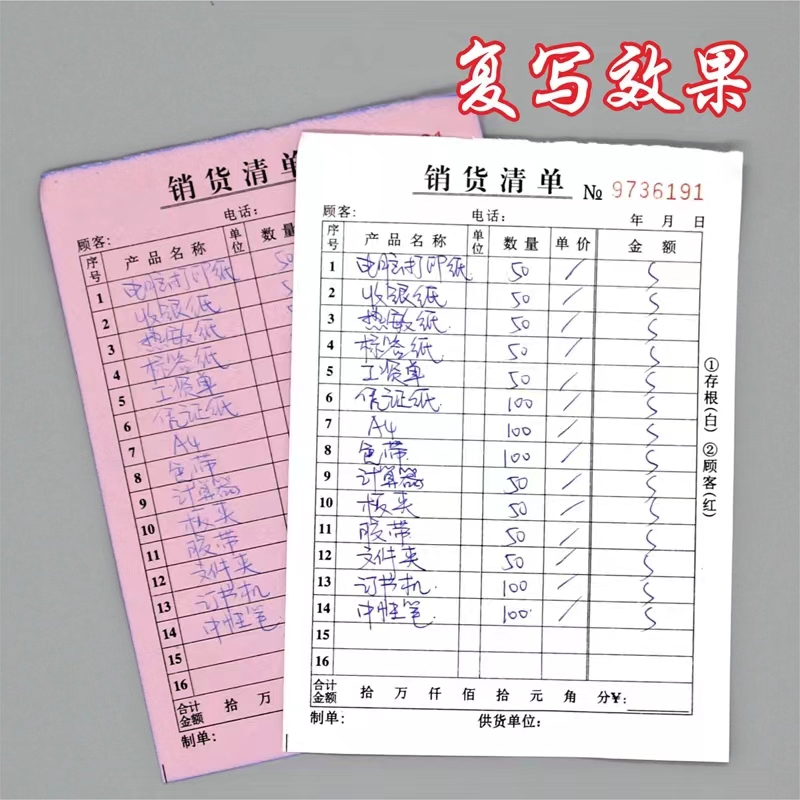 复写效果
销货清单
电话:
顾客:
序号 产品名称 单位 数量
1 电脑打印纸 50
2 收银纸
3 热敏纸
4 标签纸
5 工资单
6 凭证纸
7 A4
8 色带
9 计算器
10 板夹
11 胶带
12 文件夹
13 订书机
14 中性笔
15
16
合计金额 拾 万
制单:
销货清单 № 9736191
顾客: 电话: 年 月 日
序号 产品名称 单位 数量 单价 金额
1 电脑打印纸 50 /
2 收银纸 50 /
3 热敏纸 50 /
4 标签纸 50 /
5 工资单 50 /
6 凭证纸 100 /
7 A4 100 /
8 色带 100 /
9 计算器 50 /
10 板夹 50 /
11 胶带 50 /
12 文件夹 50 /
13 订书机 100 /
14 中性笔 100 /
15
16
合计金额 拾 万 仟 佰 拾 元 角 分¥:
制单: 供货单位:
①存根(白) ②顾客(红)